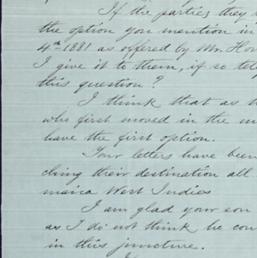 If the parties they
the option you mention in
4th 1881 as offered by Mr. Hov
I give it to them, if so tel
this question?
I think that as
who first moved in the m
have the first option.
Your letters have been
ching their destination all
maica West Indies
I am glad your son
as I do not think he cou
in this juncture.